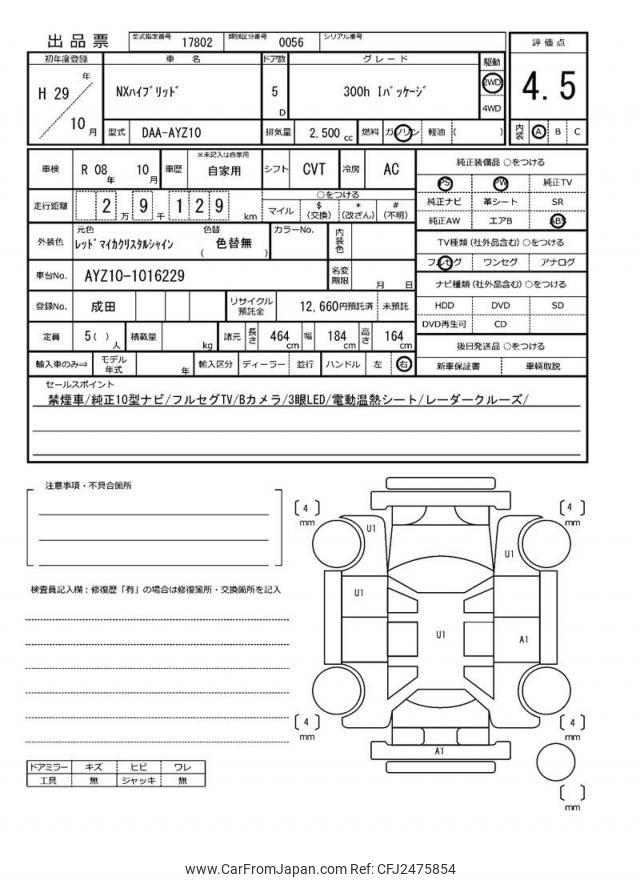 出品票 型式指定番号 17802 類別区分番号 0056 シリアル番号
初年度登録 車名 ドア数 グレード 駆動 評価点
H 29 年 10 月 NXハイブリッド 5 D 300h Iパッケージ 2WD 4WD 4.5
型式 DAA-AYZ10 排気量 2,500 cc 燃料 ガソリン 軽油 ( ) 内装 A B C
車検 R 08 年 10 月 車歴 ※未記入は自家用 自家用 シフト CVT 冷房 AC
走行距離 2 万 9 千 1 2 9 km ○をつける
マイル $ (交換) * (改ざん) # (不明)
外装色 元色 レッドマイカクリスタルシャイン 色替 ( 色替無 ) カラーNo. 内装色
車台No. AYZ10-1016229 名変期限 月 日
登録No. 成田 リサイクル預託金 12,660円預託済 未預託
定員 5 ( ) 人 積載量 kg 諸元 長さ 464 cm 幅 184 cm 高さ 164 cm
輸入車のみ⇒ モデル年式 年 輸入区分 ディーラー 並行 ハンドル 左 右
純正装備品 ○をつける
PS PW 純正TV
純正ナビ 革シート SR
純正AW エアB ABS
TV種類(社外品含む) ○をつける
フルセグ ワンセグ アナログ
ナビ種類(社外品含む) ○をつける
HDD DVD SD
DVD再生可 CD
後日発送品 ○をつける
新車保証書 車輌取説
セールスポイント
禁煙車/純正10型ナビ/フルセグTV/Bカメラ/3眼LED/電動温熱シート/レーダークルーズ/
注意事項・不具合箇所
検査員記入欄:修復歴「有」の場合は修復箇所・交換箇所を記入
ドアミラー キズ ヒビ ワレ
工具 無 ジャッキ 無
[ 4 ] mm
[ 4 ] mm
U1
U1
U1
U1
A1
[ 4 ] mm
[ 4 ] mm
A1
[ ] mm
www.CarFromJapan.com Ref: CFJ2475854